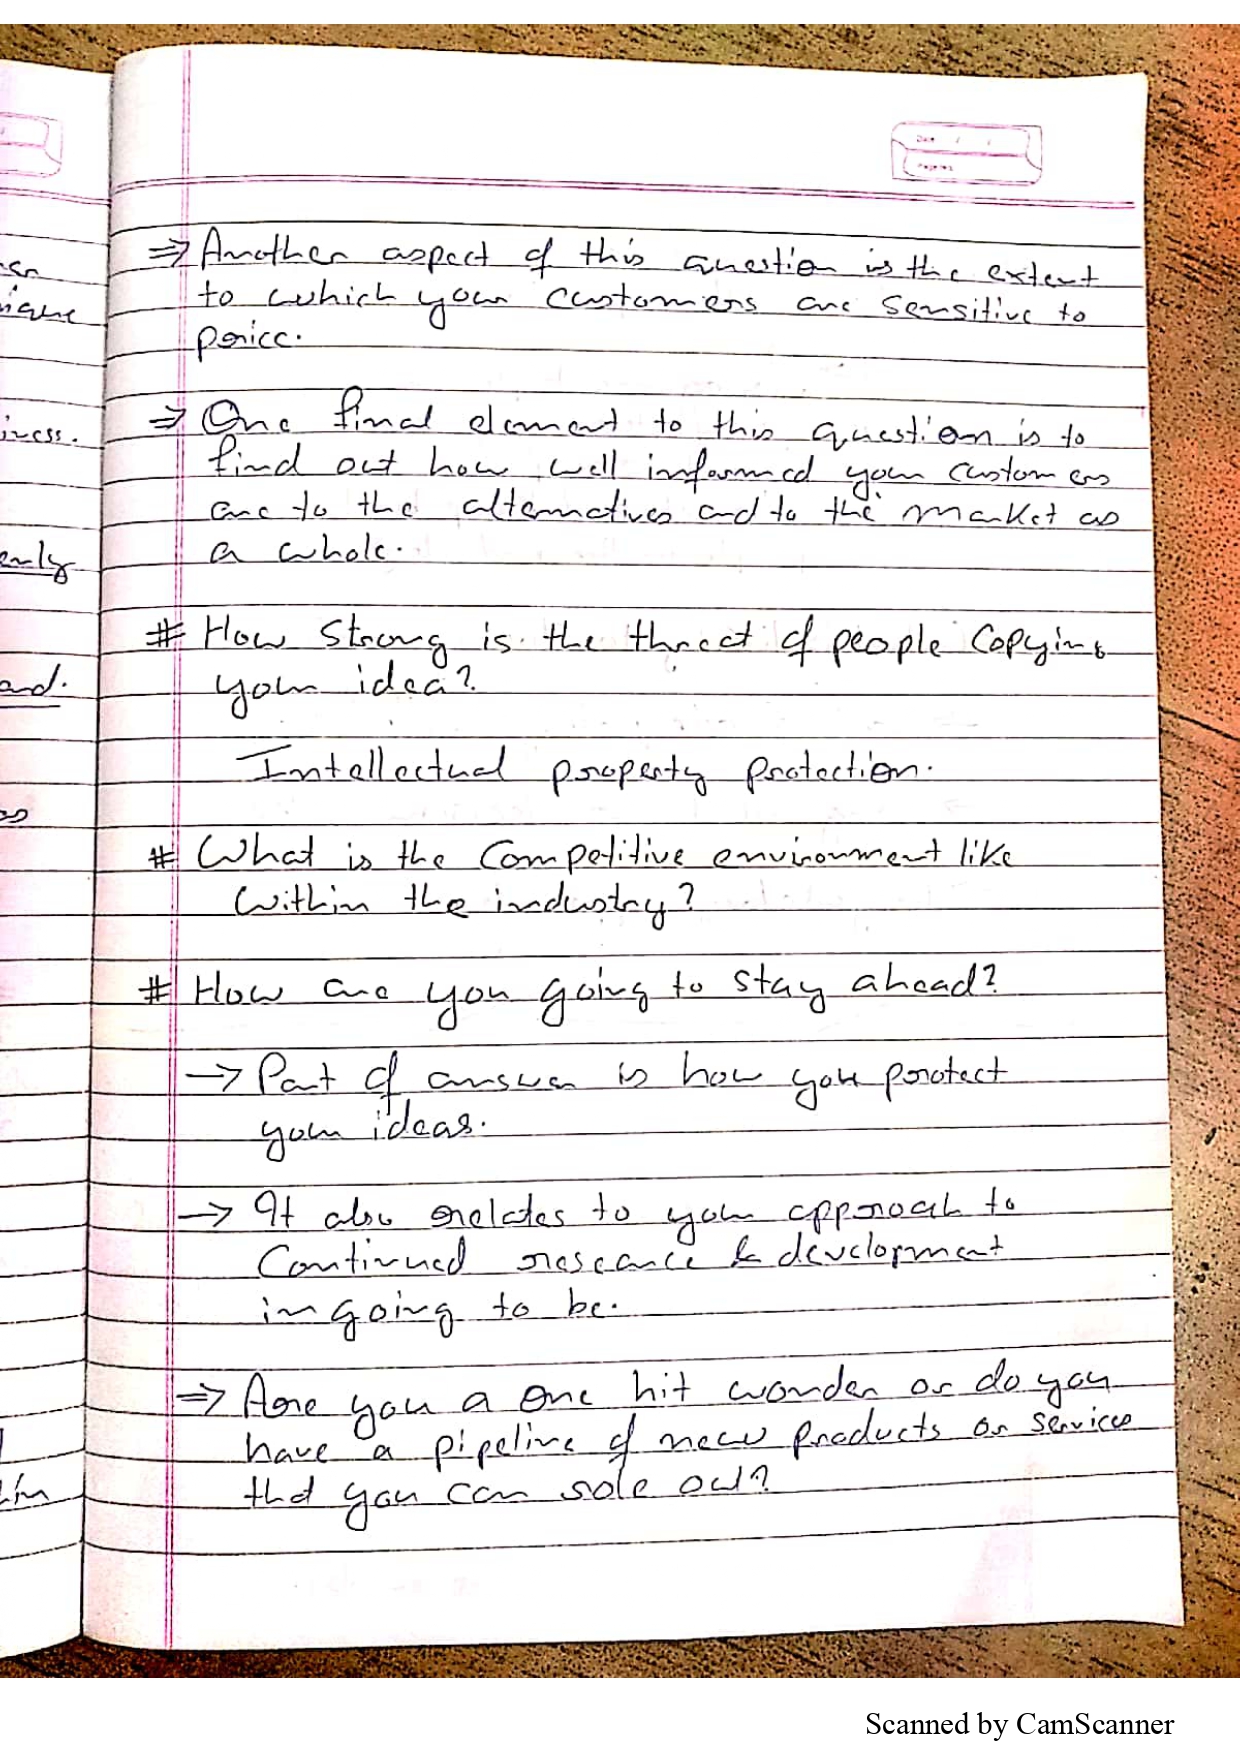 ⇒ Another aspect of this question is the extent
to which your customers are sensitive to
price.
⇒ One final element to this question is to
find out how well informed your customers
are to the alternatives and to the market as
a whole.
# How strong is the threat of people Copying
your idea?
Intellectual property protection.
# What is the Competitive environment like
Within the industry?
# How are you going to stay ahead?
→ Part of answer is how you protect
your ideas.
→ It also relates to your approach to
Continued research & development
in going to be.
⇒ Are you a one hit wonder or do you
have a pipeline of new products or services
that you can sole out?
ique
iness.
and.
Date / /
Scanned by CamScanner